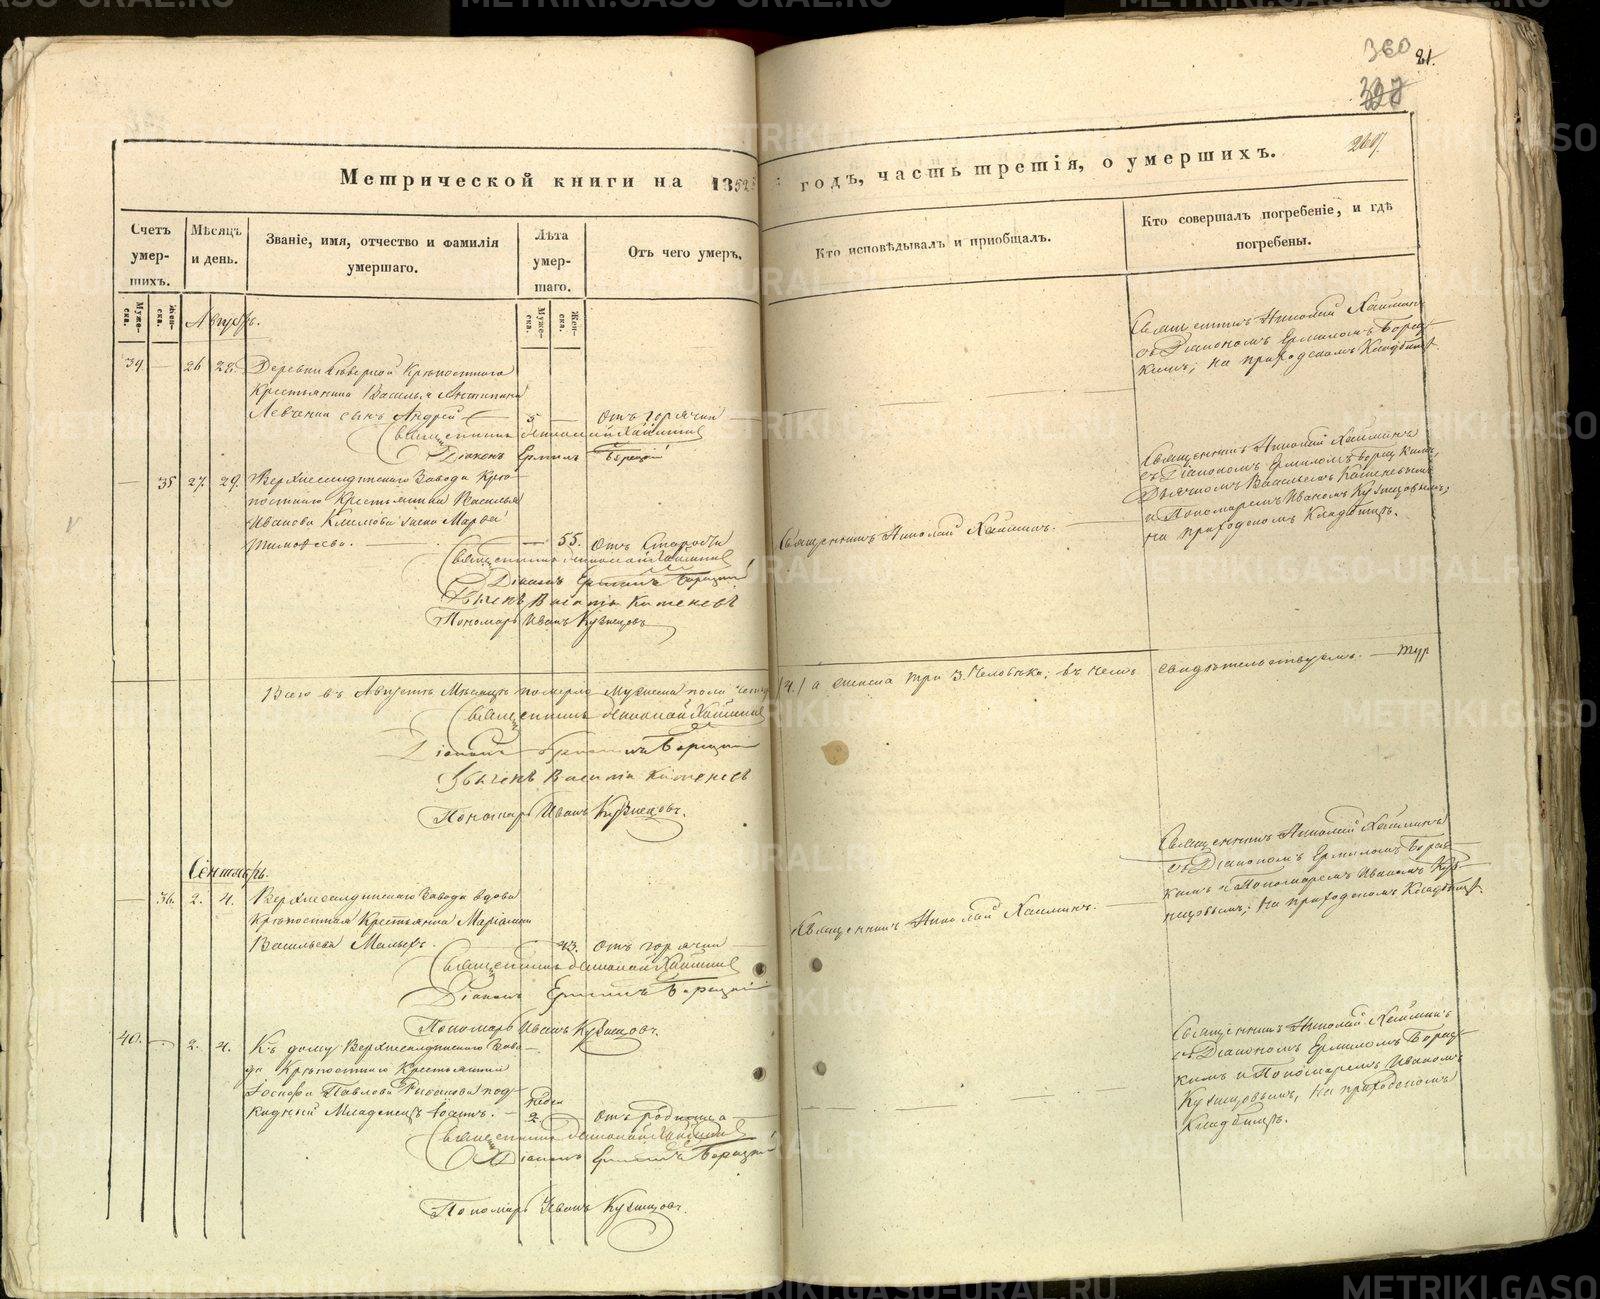 360 21.
337
269.
Метрической книги на 1852й годъ, часть третія, о умершихъ.
Счетъ умер-шихъ.
Мѣсяцъ и день.
Званіе, имя, отчество и фамилія умершаго.
Лѣта умер-шаго.
Отъ чего умеръ.
Кто исповѣдывалъ и пріобщалъ.
Кто совершалъ погребеніе, и гдѣ погребены.
Муже-ска.
Жен-ска.
Муже-ска.
Жен-ска.
Августъ.
39. — 26 28. Деревни Сѣверной Крѣпостнаго
Крестьянина Василья Антипина
Левчина сынъ Андрей — 5 — отъ горячки
Священникъ Николай Хаминъ
Діаконъ Ермилъ Борецкій
Священникъ Николай Хаминъ
съ Діакономъ Ермиломъ Борец-
кимъ; на приходскомъ Кладбищѣ.
— 35 27. 29. Верхнесалдинскаго Завода Крѣ-
постнаго Крестьянина Василья
Иванова Климова жена Марѳа
Тимоѳеева. — 55. отъ Старости
Священникъ Николай Хаминъ
Діаконъ Ермилъ Борецкій
Дьячекъ Василій
Пономарь Иванъ Кузнецовъ
Священникъ Николай Хаминъ.
Священникъ Николай Хаминъ
съ Діакономъ Ермиломъ Борецкимъ,
Дьячкомъ Васильемъ
и Пономаремъ Иваномъ Кузнецовымъ;
на приходскомъ Кладбищѣ.
Всего въ Августѣ Мѣсяцѣ померло Мужеска пола четыре (4.) а женска три 3. Человѣка; въ чемъ свидѣтельствуемъ.
Священникъ Николай Хаминъ
Діаконъ Ермилъ Борецкій
Дьячекъ Василій
Пономарь Иванъ Кузнецовъ.
Сентябрь.
— 36. 2. 4. Верхнесалдинскаго Завода вдова
Крѣпостная Крестьянка
Васильева Малыхъ. 43. отъ горячки
Священникъ Николай Хаминъ
Діаконъ Ермилъ Борецкій
Пономарь Иванъ Кузнецовъ.
Священникъ Николай Хаминъ.
Священникъ Николай Хаминъ
съ Діакономъ Ермиломъ Борец-
кимъ и Пономаремъ Иваномъ Куз-
нецовымъ; на приходскомъ Кладбищѣ.
40. — 2. 4. Къ дому Верхнесалдинскаго Заво-
да Крѣпостнаго Крестьянина
Іосифа Павлова под-
кидный Младенецъ Іоаннъ. — недели 2. отъ родимца
Священникъ Николай Хаминъ
Діаконъ Ермилъ Борецкій
Пономарь Иванъ Кузнецовъ.
Священникъ Николай Хаминъ
съ Діакономъ Ермиломъ Борец-
кимъ и Пономаремъ Иваномъ
Кузнецовымъ, на приходскомъ
Кладбищѣ.
METRIKI.GASO-URAL.RU